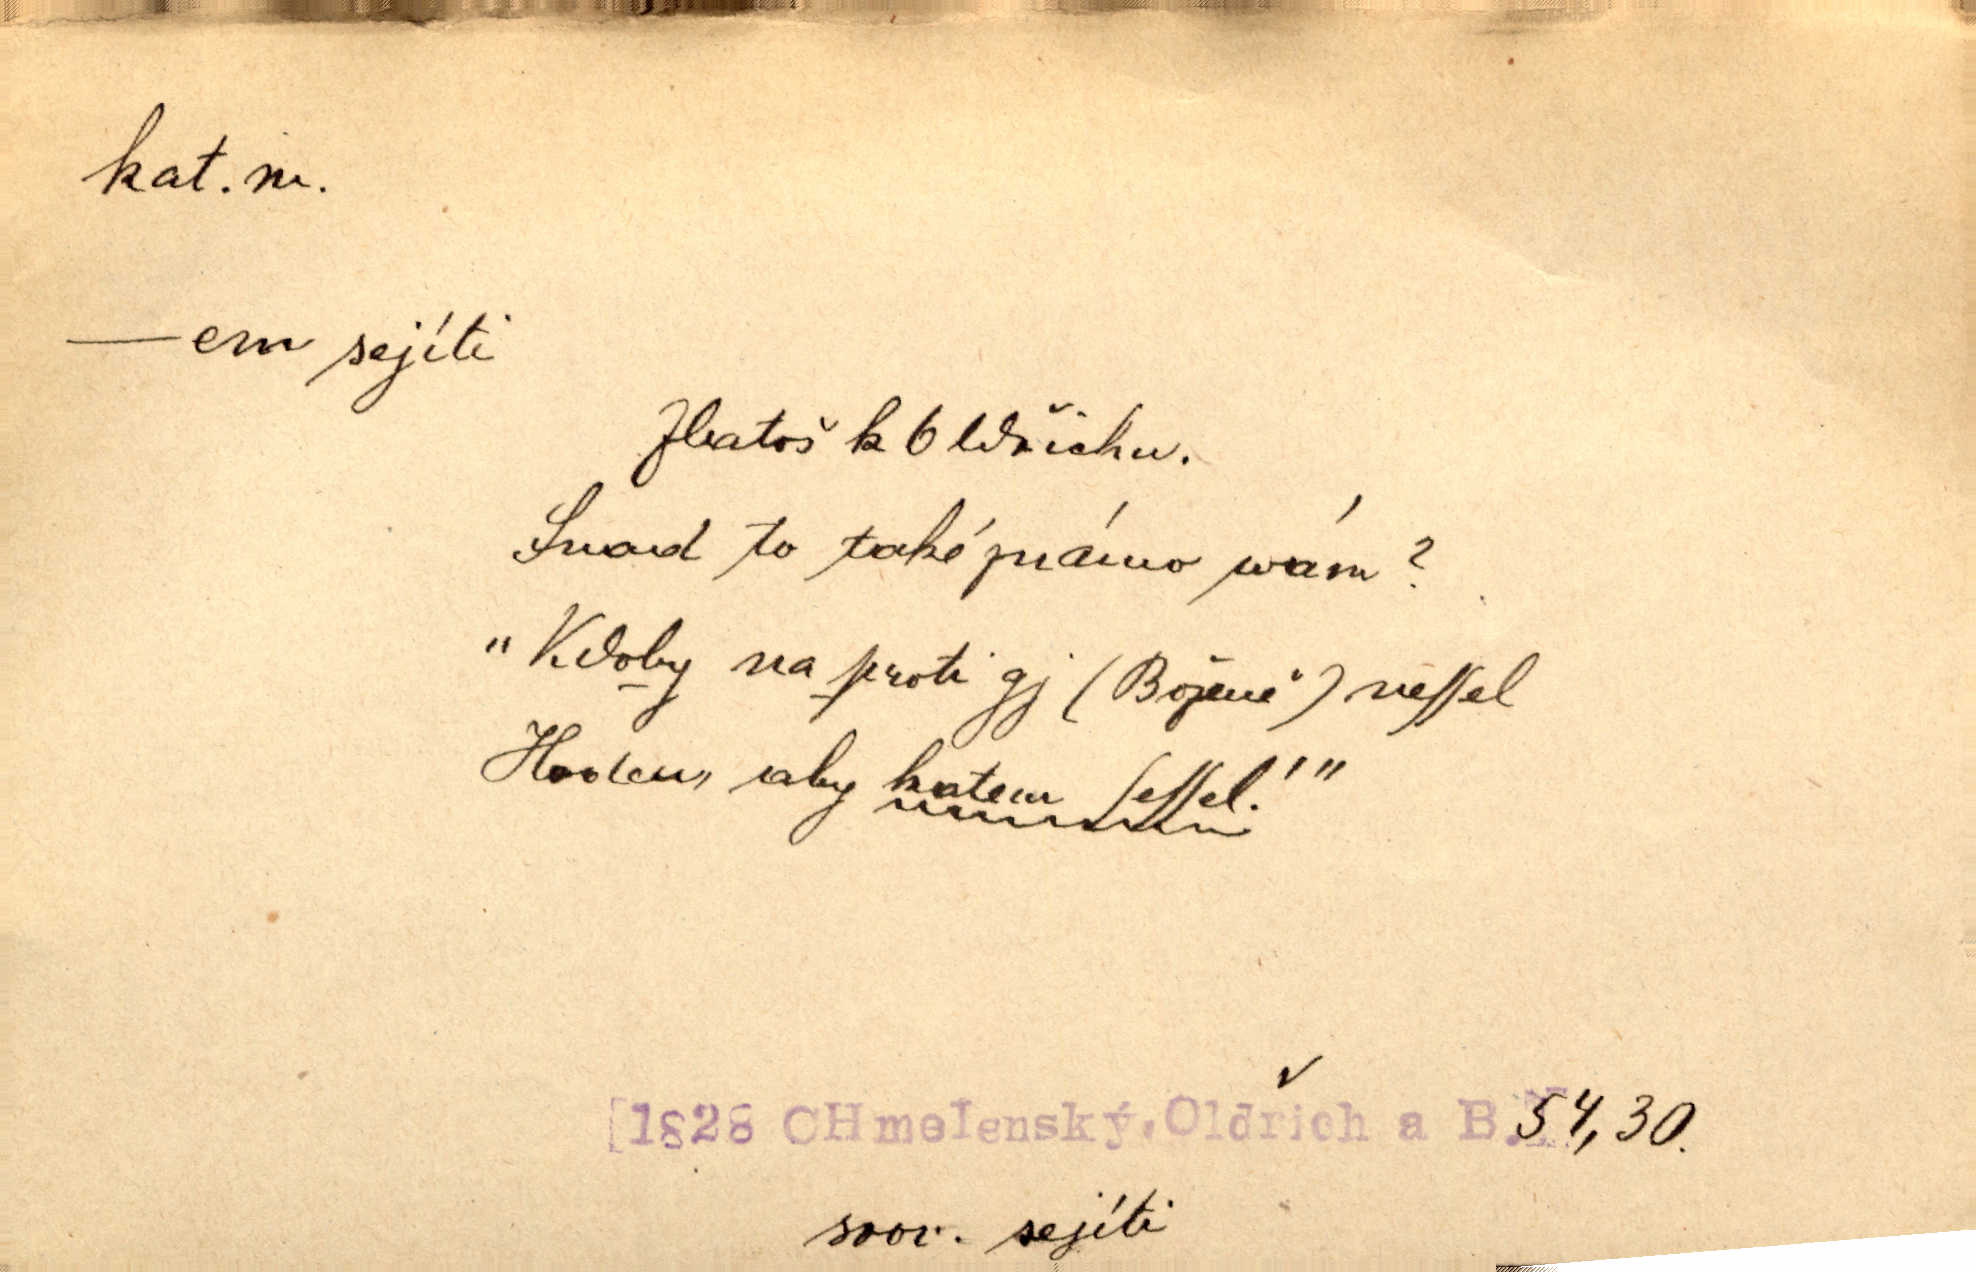 kat. m.
—em sejíti
Zbatoš k Oldřichu.
Snad to také známo wám?
"Kdoby na proti gj (Boženě) neſſel
Hoden, aby katem ſeſſel!"
[1828 CHmelenský, Oldřich a B. 54, 30.
srov. sejíti